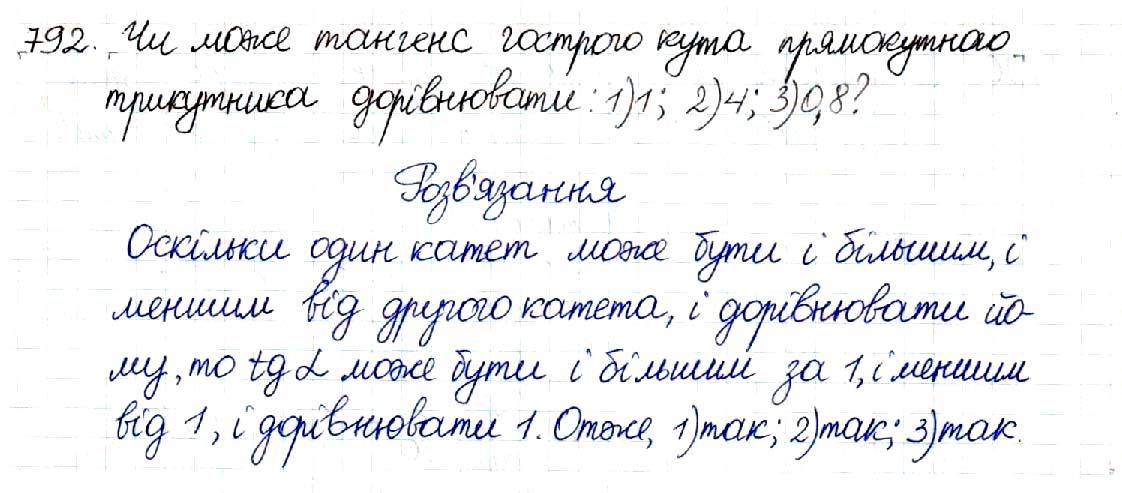 792. Чи може тангенс гострого кута прямокутного
трикутника дорівнювати: 1)1; 2)4; 3)0,8?
Розв'язання
Оскільки один катет може бути і більшим, і
меншим від другого катета, і дорівнювати йо-
му, то tg α може бути і більшим за 1, і меншим
від 1, і дорівнювати 1. Отже, 1)так; 2)так; 3)так.